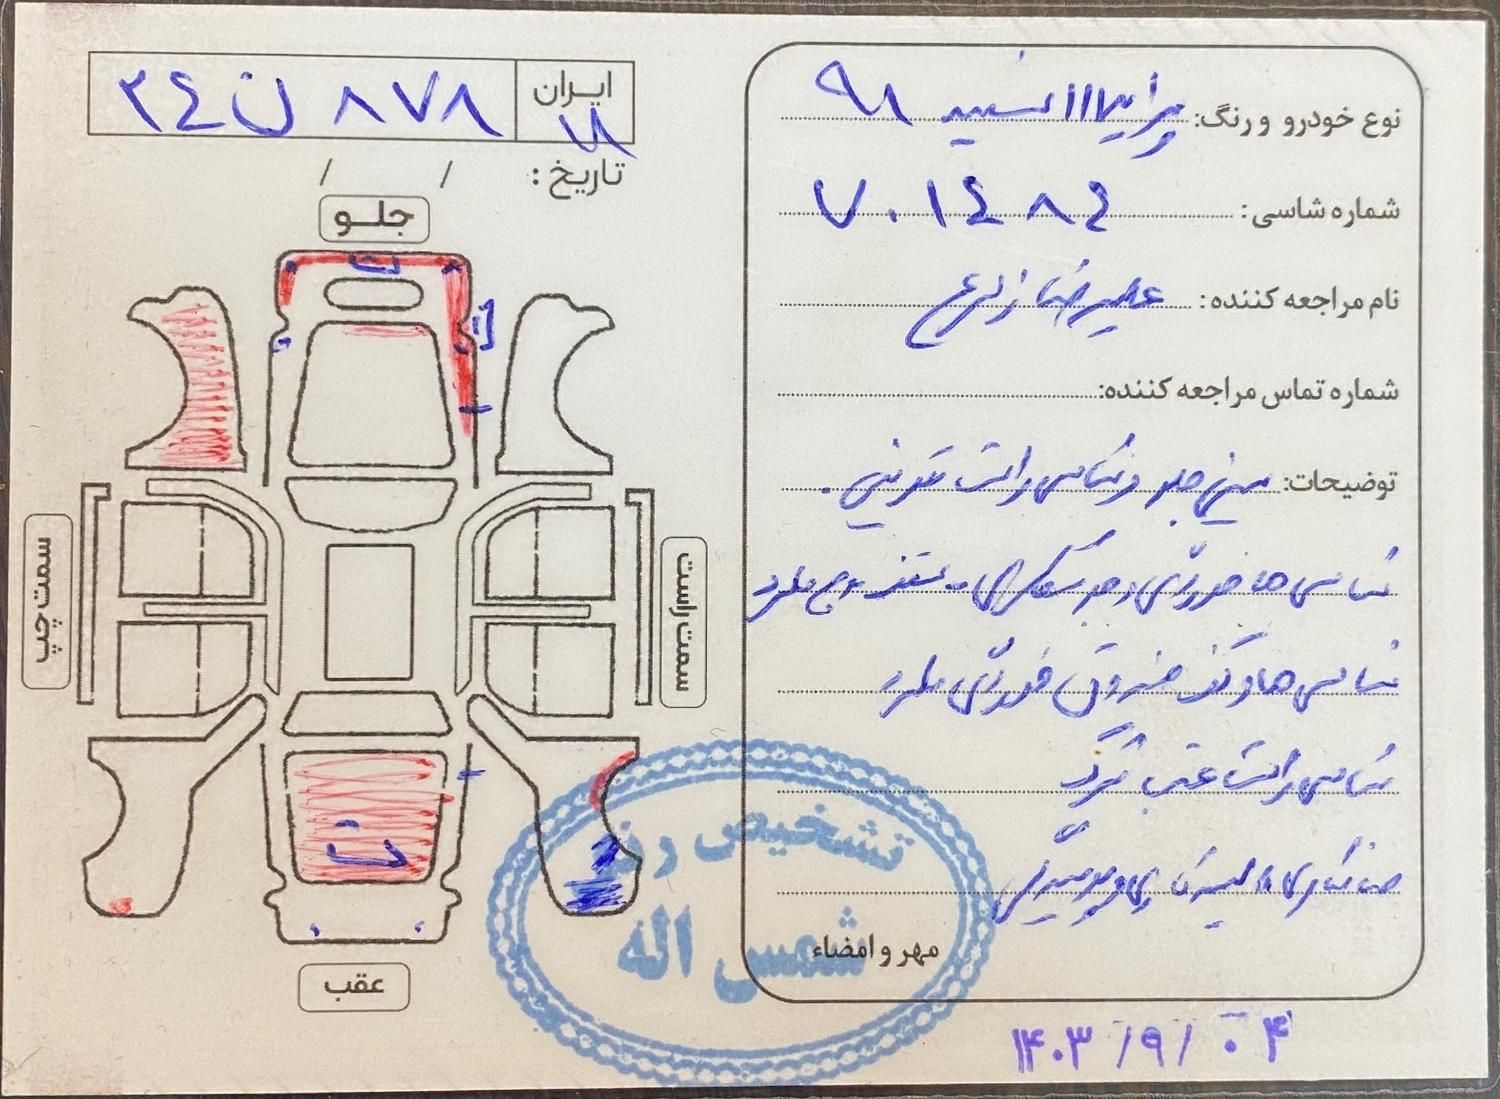 ایران
۷۸
۸۷۸ ن ۳۴
تاریخ: / /
جلو
سمت چپ
سمت راست
عقب
نوع خودرو و رنگ: پراید ۱۱۱ سفید ۹۸
شماره شاسی: ۷۰۱۴۸۴
نام مراجعه کننده: علیرضا زارع
شماره تماس مراجعه کننده:
توضیحات: سینی جلو و شاسی راست تعویض.
شاسی ها خوردگی و جوشکاری - سقف
شاسی ها و کف صندوق خوردگی دارد
شاسی راست عقب ترک
مهر و امضاء
تشخیص رنگ
شمس اله
۱۴۰۳/۹/۰۴